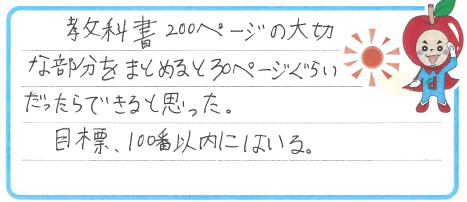 教科書200ページの大切
な部分をまとめると30ページぐらい
だったらできると思った。
目標、100番以内にはいる。